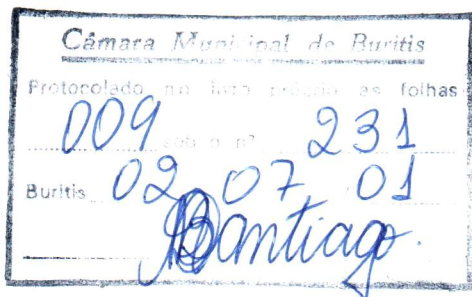 Câmara Municipal de Buritis
Protocolado no livro próprio as folhas
009 sob o nº 231
Buritis 02 07 01
Santiago.